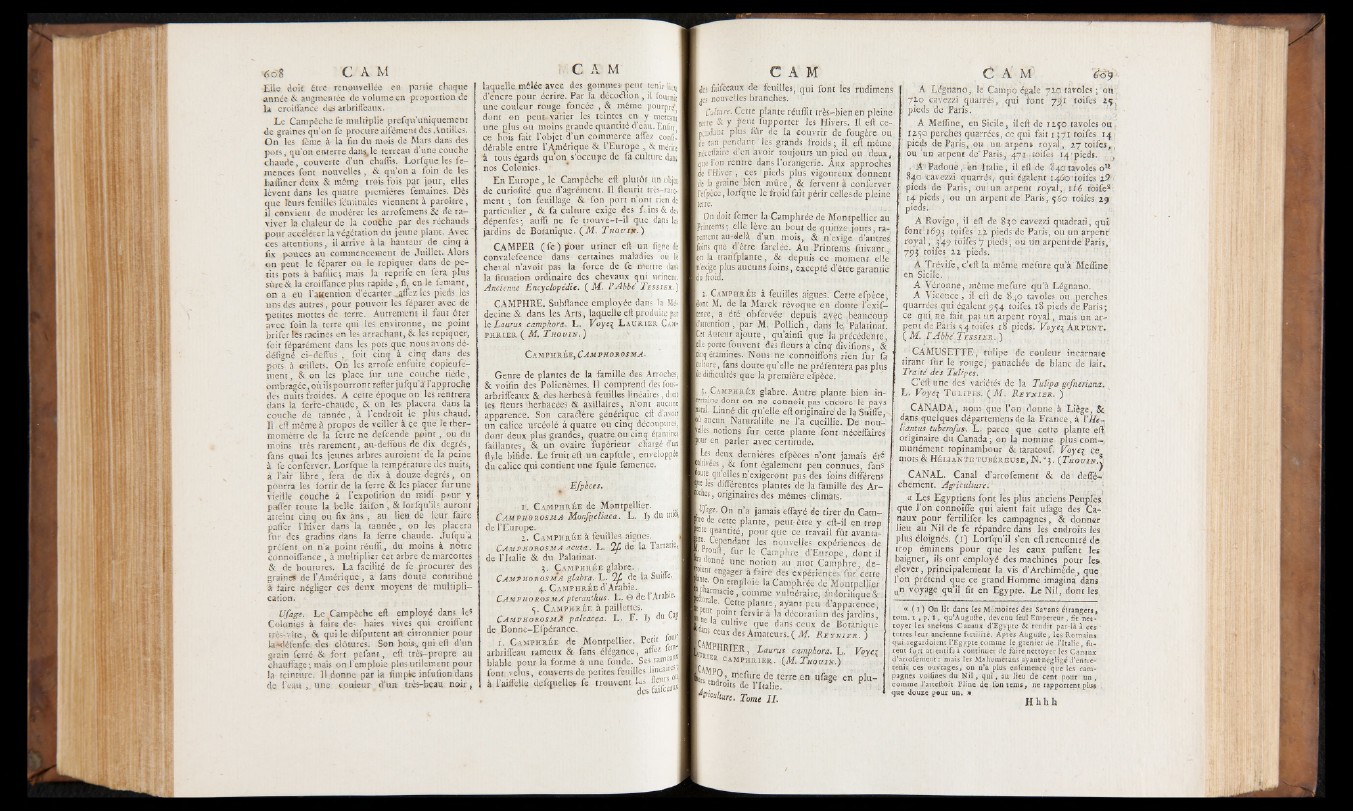 608 C A M
Elle doit être renouvellée en partie chaque
année & augmentée de volume en proportion de
la croissance des arbrisseaux.
Le Campêche se multiplie presqu'uniquement
de graines qu'on se procure aisément des Antilles.
On les sème à la fin du mois de Mars dans des
pots, qu'on enterre dans le terreau d'une couche
chaude, couverte d'un chassis. Lorsque les se-
mences sont nouvelles, & qu'on a soin de les
bassiner deux & même trois fois par jour, elles
lèvent dans les quatre premières semaines. Dès
que leurs feuilles séminales viennent à paroître,
il convient de modérer les arrosemens & de ra-
viver la chaleur de la couche par des réchauds
pour accélérer la végétation du jeune plant. Avec
ces attentions, il arrive à la hauteur de cinq à
six pouces au commencement de Juillet. Alors
on peut le séparer ou le repiquer dans de pe-
tits pots à basilic; mais la reprise en sera plus
sûre & la croissance plus rapide, si, en le semant,
on a eu l'attention d'écarter assez les pieds les
uns des autres, pour pouvoir les séparer avec de
petites mottes de terre. Autrement il faut ôter
avec soin la terre qui les environne, ne point
briser les racines en les arrachant, & les repiquer,
soit séparément dans les pots que nous avons dé-
désigné ci-dessus, soit cinq à cinq dans des
pots à œillets. On les arrose ensuite copieuse-
ment, & on les place sur une couche tiède,
ombragée, où ils pourront rester jusqu'à l'approche
des nuits froides. A cette époque on les rentrera
dans la serre-chaude, & on les placera dans la
couche de tannée, à l'endroit le plus chaud.
Il est même à propos de veiller à ce que le ther-
momètre de la serre ne descende point, ou du
moins très rarement, au-dessous de dix degrés,
sans quoi les jeunes arbres auroient de la peine
à se conserver. Lorsque la température des nuits,
à l'air libre, sera de dix à douze degrés, on
pourra les sortir de la serre & les placer sur une
vieille couche à l'exposition du midi pour y
passer toute la belle saison, & lorsqu'ils auront
atteint cinq ou six ans, au lieu de leur faire
passer l'hiver dans la tannée, on les placera
sur des gradins dans la serre chaude. Jusqu'à
présent on n'a point réussi, du moins à notre
connoissance, à multiplier cet arbre de marcottes
& de boutures. La facilité de se procurer des
graines de l'Amérique, a sans doute contribué
à faire négliger ces deux moyens de multipli-
cation.
Usage. Le Campêche est employé dans les
Colonies à faire des haies vives qui croissent
très-vite, & qui le disputent au citronnier pour
la défense des clôtures. Son bois, qui est d'un
grain serré & fort pesant, est très-propre au
chauffage; mais on l'emploie plus utilement pour
la teinture. Il donne par la simple infusion dans
de l'eau, une couleur d'un très-beau noir,
C A M
laquelle mêlée avec des gommes peut tenir lieu
d'encre pour écrire. Par la décoction, il fournit
une couleur rouge foncée, & même pourpre,
dont on peut varier les teintes en y mettant
une plus ou moins grande quantité d'eau. Enfin,
ce bois fait l'objet d'un commerce assez consi-
dérable entre l'Amérique & l'Europe, & mérite
à tous égards qu'on s'occupe de sa culture dans
nos Colonies.
En Europe, le Campêche est plutôt un objet
de curiosité que d'agrément. Il fleurit très-rare-
ment; son feuillage & son port n'ont rien de
particulier, & sa culture exige des soins & des
dépenses; aussi ne se trouve-t-il que dans les
jardins de Botanique. (M. Thouin.)
CAMPER (se) pour uriner est un signe de
convalescence dans certaines maladies où le
cheval n'avoit pas la force de se mettre dans
la situation ordinaire des chevaux qui urinent.
Ancienne Encyclopédie. (M. l'Abbé Tessier.)
CAMPHRE. Substance employée dans la Mé-
decine & dans les Arts, laquelle est produite par
le Laurus camphora. L. Voyez Laurier Cam-
phrier (M. Thouin.)
Camphrée, Camphorosma.
Genre de plantes de la famille des Arroches,
& voisin des Policnèmes. Il comprend des sous-
arbrisseaux & des herbes à feuilles linéaires, dont
les fleurs herbacées & axillaires, n'ont aucune
apparence. Son caractère générique est d'avoir
un calice urcéolé à quatre ou cinq découpures,
dont deux plus grandes, quatre ou cinq étamines
saillantes, & un ovaire supérieur chargé d'un
style bifide. Le fruit est un capsule, enveloppée
du calice qui contient une seule semence.
Espèces.
1. Camphrée de Montpellier.
Camphorosma Monspeliaca. L. ♄ du midi
de l'Europe.
2. Camphrée à feuilles aigues.
Camphorosma acuta. L. ♃ de la Tartarie,
de l'Italie & du Palatinat.
3. Camphrée glabre.
Camphorosma glabra. L. ♃ de la Suisse.
4. Camphrée d'Arabie.
Camphorosma pteranthus. L. ⊙ de l'Arabie.
5. Camphrée à paillettes.
Camphorosma paleacea. L. F. ♄ du Cap
de Bonne-Espérance.
1. Camphrée de Montpellier. Petit sous-
arbrisseau rameux & sans élégance, assez sem-
blable pour la forme à une soude. Ses rameaux
sont velus, couverts de petites feuilles linéaires
à l'aisselle desquelles se trouvent les fleurs ou
des faisceaux
C A M
des faisceaux de feuilles, qui sont les rudimens
de nouvelles branches.
Culture. Cette plante réussit très-bien en pleine
terre & y peut supporter les Hivers. Il est ce-
pendant plus sûr de la couvrir de fougère ou
de tan pendant les grands froids; il est même
nécessaire d'en avoir toujours un pied ou deux,
que l'on rentre dans l'orangerie. Aux approches
de l'Hiver, ces pieds plus vigoureux donnent
de la graine bien mûre, & servent à conserver
l'espèce, lorsque le froid fait périr celles de pleine
terre.
On doit semer la Camphrée de Montpellier au
Printems: elle lève au bout de quinze jours, ra-
rement au-delà d'un mois, & n'exige d'autres
soins que d'être sarclée. Au Printems suivant,
on la transplante, & depuis ce moment elle
n'exige plus aucuns soins, excepté d'être garantie
du froid.
2. Camphrée à feuilles aigues. Cette espèce,
dont M. de la Marck révoque en doute l'exis-
tence, a été observée depuis avec beaucoup
d'attention, par M. Pollich, dans le Palatinat.
Cet Auteur ajoute, qu'ainsi que la précédente,
elle porte souvent des fleurs à cinq divisions, &
cinq étamines. Nous ne connoissons rien sur sa
culture, sans doute qu'elle ne présentera pas plus
de difficultés que la première espèce.
3. Camphrée glabre. Autre plante bien in-
certaine dont on ne connoît pas encore le pays
natal. Linné dit qu'elle est originaire de la Suisse,
où aucun Naturaliste ne l'a cueillie. De nou-
velles notions sur cette plante sont nécessaires
pour en parler avec certitude.
Les deux dernières espèces n'ont jamais été
cultivées, & sont également peu connues, sans
doute qu'elles n'exigeront pas des soins différens
que les différentes plantes de la famille des Ar-
roches, originaires des mêmes climats.
Usage. On n'a jamais essayé de tirer du Cam-
phre de cette plante, peut-être y est-il en trop
petite quantité, pour que ce travail fût avanta-
geux. Cependant les nouvelles expériences de
M. Proust, sur le Camphre d'Europe, dont il
est donné une notion au mot Camphre, de-
vroient engager à faire des expériences sur cette
plante. On emploie la Camphrée de Montpellier
en pharmacie, comme vulnéraire, sudorifique &
Cette plante, ayant peu d'apparence,
ne peut point servir à la décoration des jardins,
on ne la cultive que dans ceux de Botanique
& dans ceux des Amateurs. (M. Reynier.)
CAMPHRIER, Laurus camphora. L. Voyez
Laurier camphrier. (M. Thouin.)
CAMPO, mesure de terre en usage en plu-
sieurs endroits de l'Italie.
Agriculture. Tome II.
C A M 609
A Légnano, le Campo égale 720 tavoles; où
720 cavezzi quarrés, qui font 791 toises 25
pieds de Paris.
A Messine, en Sicile, il est de 1250 tavoles ou
1250 perches quarrées, ce qui fait 1371 toises 14
pieds de Paris, ou un arpent royal, 27 toises,
ou un arpent de Paris, 471 toises 14 pieds.
A Padoue, en Italie, il est de 840 tavoles ou
840 cavezzi quarrés, qui égalent 1460 toises 29
pieds de Paris, ou un arpent royal, 116 toises
14 pieds, ou un arpent de Paris, 560 toises 29
pieds.
A Rovigo, il est de 850 cavezzi quadrati, qui
font 1693 toises 22 pieds de Paris, ou un arpent
royal, 349 toises 7 pieds, ou un arpent de Paris,
793 toises 22 pieds.
A Trévise, c'est la même mesure qu'à Messine
en Sicile.
A Véronne, même mesure qu'à Légnano.
A Vicence, il est de 840 tavoles ou perches
quarrées qui égalent 954 toises 18 pieds de Paris;
ce qui ne fait pas un arpent royal, mais un ar-
pent de Paris 54 toises 18 pieds. Voyez Arpent.
(M. l'Abbé Tessier.)
CAMUSETTE, tulipe de couleur incarnate
tirant sur le rouge, panachée de blanc de lait.
Traité des Tulipes.
C'est une des variétés de la Tulipa gesneriana.
L. Voyez Tulipes. (M. Reynier.)
CANADA, nom que l'on donne à Liège, &
dans quelques départemens de la France, à l'He-
liantus tuberosus. L. parce que cette plante est
originaire du Canada; on la nomme plus com-
munément topinambour & taratouf. Voyez ces
mots & Hélianto tubéreuse, N.° 3. (Thouin.)
CANAL. Canal d'arrosement & de dessè-
chement. Agriculture.
« Les Egyptiens sont les plus anciens Peuples
que l'on connoisse qui aient fait usage des Ca-
naux pour fertiliser les campagnes, & donner
lieu au Nil de se répandre dans les endroits les
plus éloignés. (1) Lorsqu'il s'en est rencontré de
trop éminens pour que les eaux pussent les
baigner, ils ont employé des machines pour les
élever, principalement la vis d'Archimède, que
l'on prétend que ce grand Homme imagina dans
un voyage qu'il fit en Egypte. Le Nil, dont les
« (1) On lit dans les Mémoires des Savans étrangers,
tom. 1, p. 8, qu'Auguste, devenu seul Empereur, fit net-
toyer les anciens Canaux d'Egypte & rendit par-là à ces
terres leur ancienne fertilité. Après Auguste, les Romains
qui regardoient l'Egypte comme le grenier de l'Italie, fu-
rent fort attentifs à continuer de faire nettoyer les Canaux
d'arrosement; mais les Mahométans ayant négligé l'entre-
tenir ces ouvrages, on n'a plus ensemencé que les cam-
pagnes voisines du Nil, qui, au lieu de cent pour un,
comme l'attestoit Pline de son tems, ne rapportent plus
que douze pour un. »
H h h h